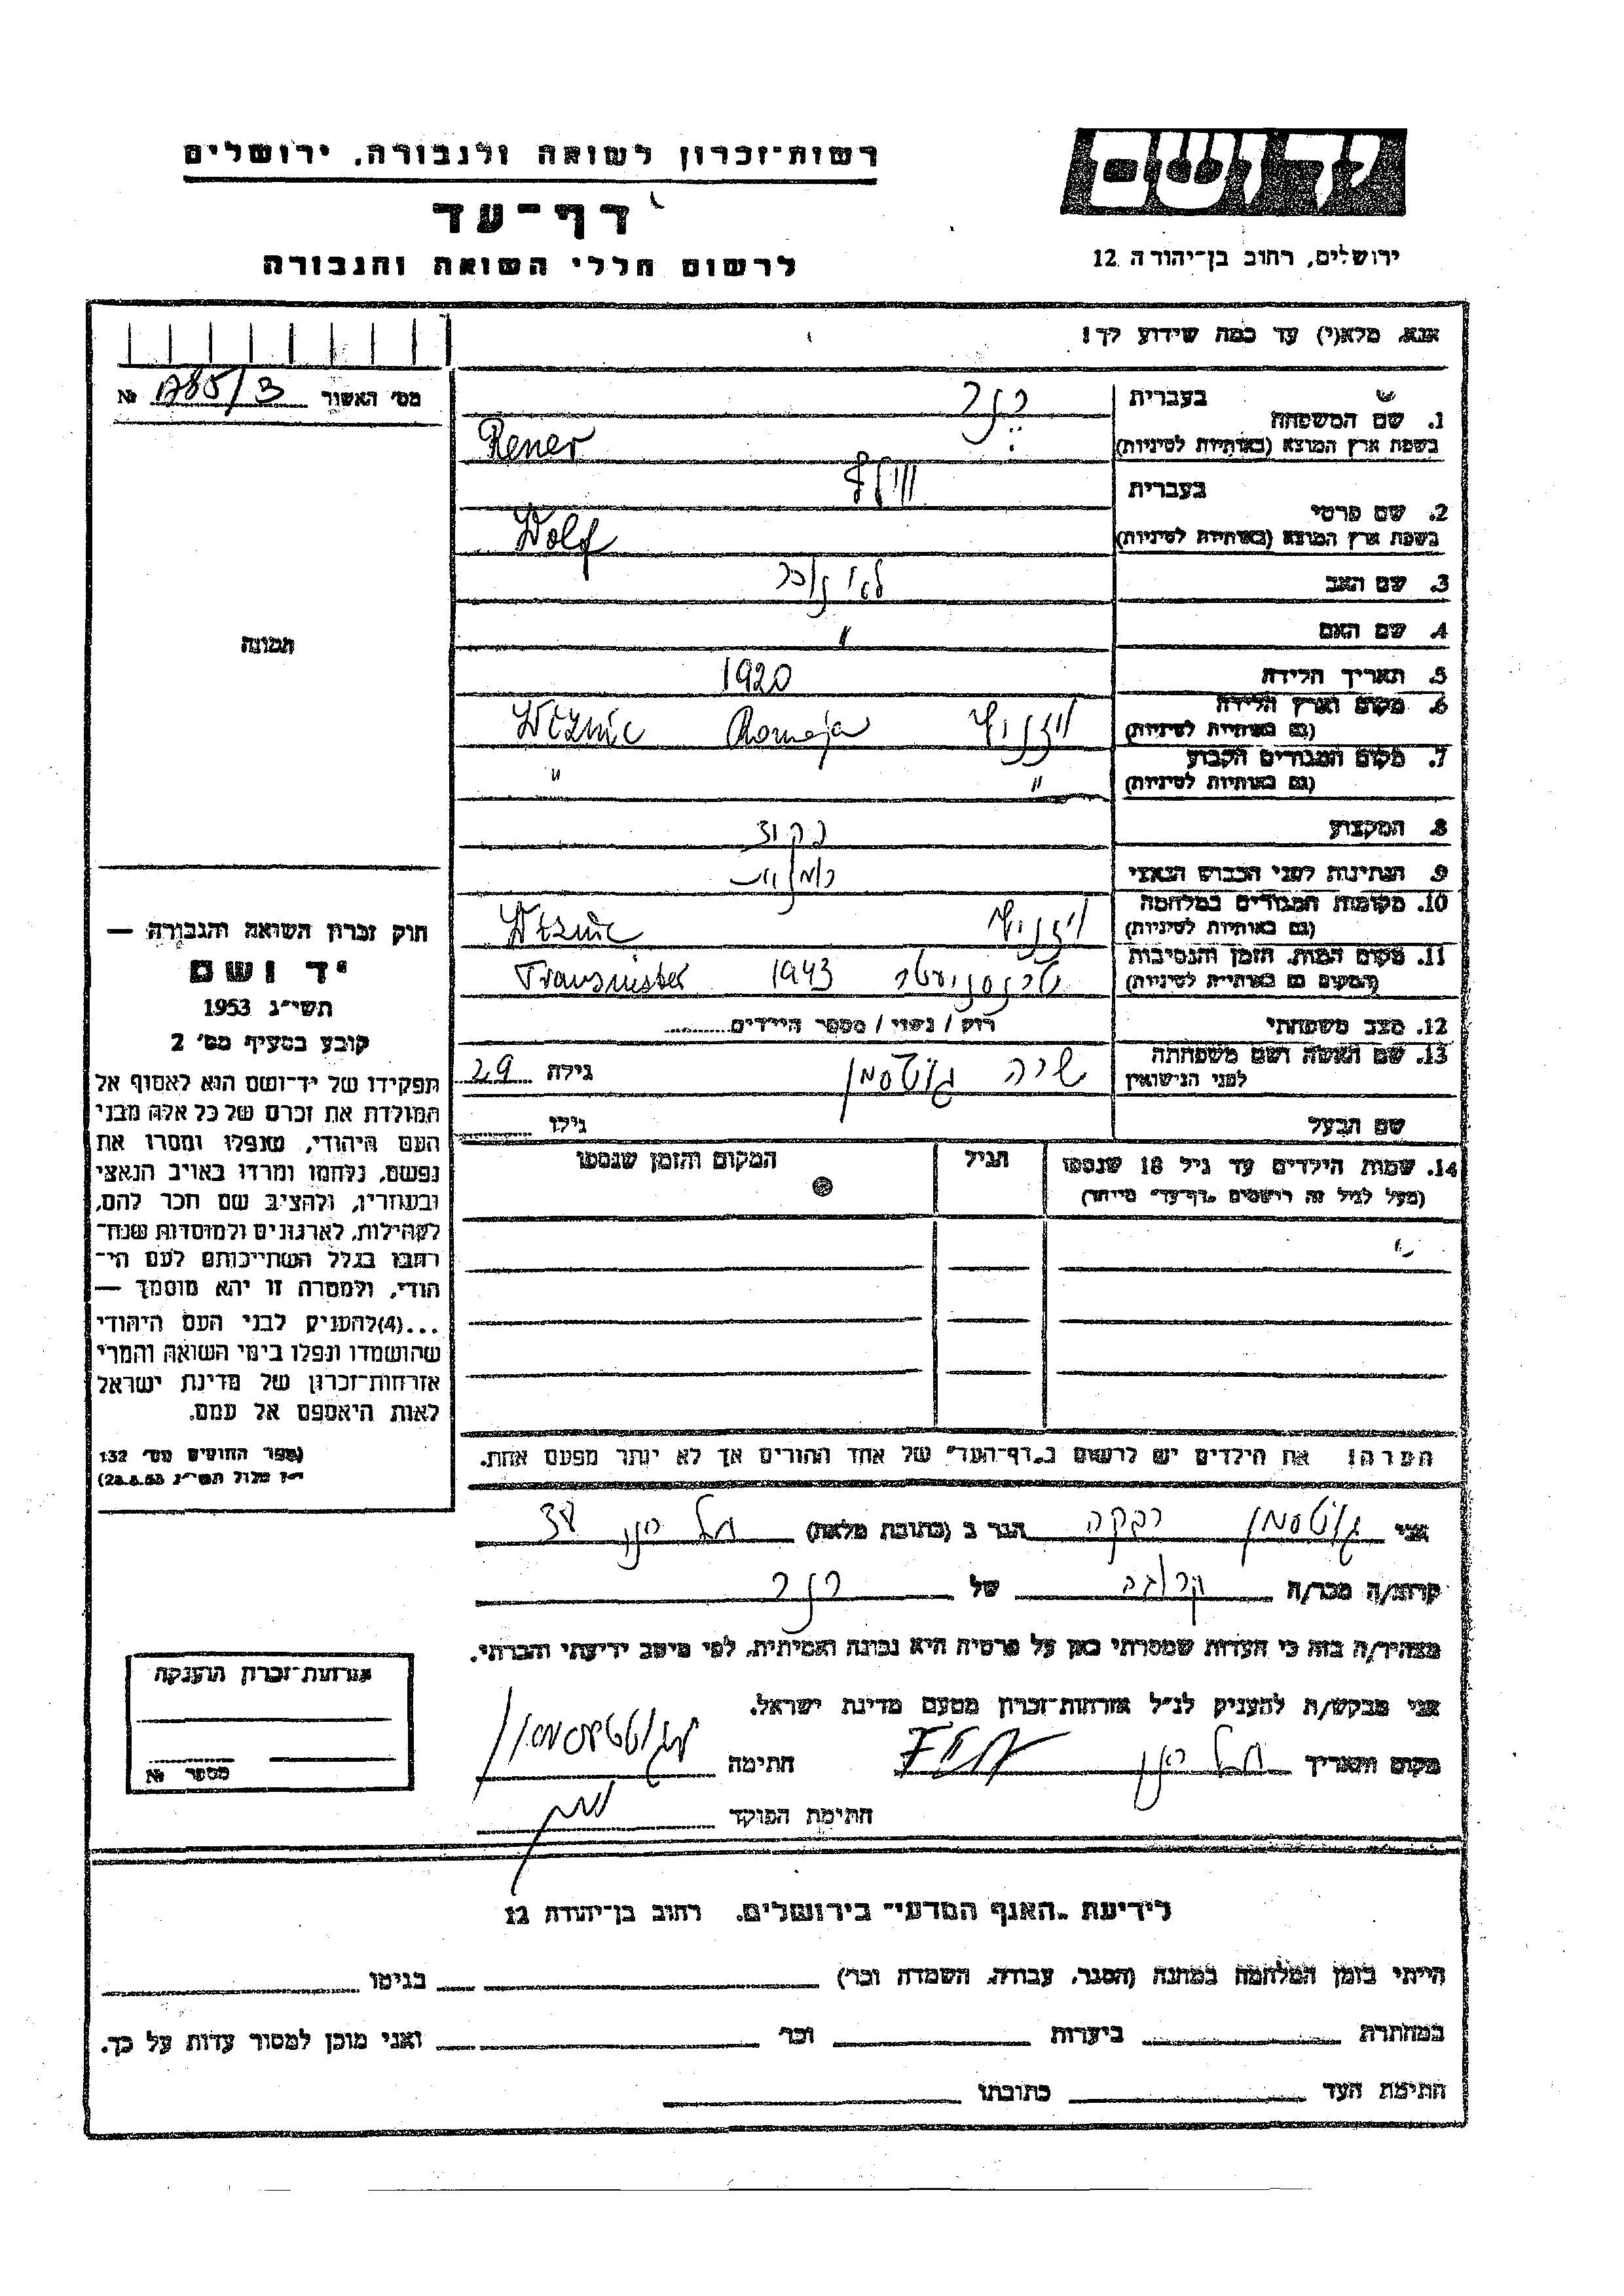 יד ושם
ירושלים, רחוב בן-יהודה 12
רשות-זכרון לשואה ולגבורה, ירושלים
דף-עד
לרשום חללי השואה והגבורה
אנא, מלא(י) עד כמה שידוע לך!
מס' האשור 1785/3 №
בעברית רנר
1. שם המשפחה
בשפת ארץ המוצא (באותיות לטיניות) Rener
בעברית וולף
2. שם פרטי
בשפת ארץ המוצא (באותיות לטיניות) Wolf
3. שם האב לא נזכר
4. שם האם "
5. תאריך הלידה 1920
6. מקום וארץ הלידה
(גם באותיות לטיניות) ויזניץ Romaja Wiznic
7. מקום המגורים הקבוע
(גם באותיות לטיניות) " "
8. המקצוע
9. הנתינות לפני הכבוש הנאצי
10. מקומות המגורים במלחמה
(גם באותיות לטיניות) ויזניץ Wiznic
11. מקום המות, הזמן והנסיבות
(המקום גם באותיות לטיניות) טרנסניסטר 1943 Transnister
12. מצב משפחתי רוק / נשוי / מספר הילדים
13. שם האשה ושם משפחתה
לפני הנישואין גוטסמן גילה 29
שם הבעל גילו
14. שמות הילדים עד גיל 18 שנספו הגיל המקום והזמן שנספו
(מעל לגיל זה רושמים "דף-עד" מיוחד)
תמונה
חוק זכרון השואה והגבורה —
יד ושם
תשי"ג 1953
קובע בסעיף מס' 2
תפקידו של יד-ושם הוא לאסוף אל
המולדת את זכרם של כל אלה מבני
העם היהודי, שנפלו ומסרו את
נפשם, נלחמו ומרדו באויב הנאצי
ובעוזריו, ולהציב שם וזכר להם,
לקהילות, לארגונים ולמוסדות שנח-
רבו בגלל השתייכותם לעם הי-
הודי, ולמטרה זו יהא מוסמך —
...(4) להעניק לבני העם היהודי
שהושמדו ונפלו בימי השואה והמרי
אזרחות-זכרון של מדינת ישראל
לאות היאספם אל עמם.
(ספר החוקים מס' 132
י"ז אלול תשי"ג 28.8.53)
הערה! את הילדים יש לרשום ב"דף-העד" של אחד ההורים אך לא יותר מפעם אחת.
אני גוטסמן רבקה הגר ב (כתובת מלאה)
קרוב/ה מכר/ה קרובה של רנר
מצהיר/ה בזה כי העדות שמסרתי כאן על פרטיה היא נכונה ואמיתית, לפי מיטב ידיעתי והכרתי.
אני מבקש/ת להעניק לנ"ל אזרחות-זכרון מטעם מדינת ישראל.
מקום ותאריך חתימה
חתימת הפוקד
אזרחות-זכרון הוענקה
מספר №
לידיעת "האגף המדעי" בירושלים. רחוב בן-יהודה 12
הייתי בזמן המלחמה במחנה (הסגר, עבודה, השמדה וכו') בגיטו
במחתרת ביערות וכו' ואני מוכן למסור עדות על כך.
חתימת העד כתובתו